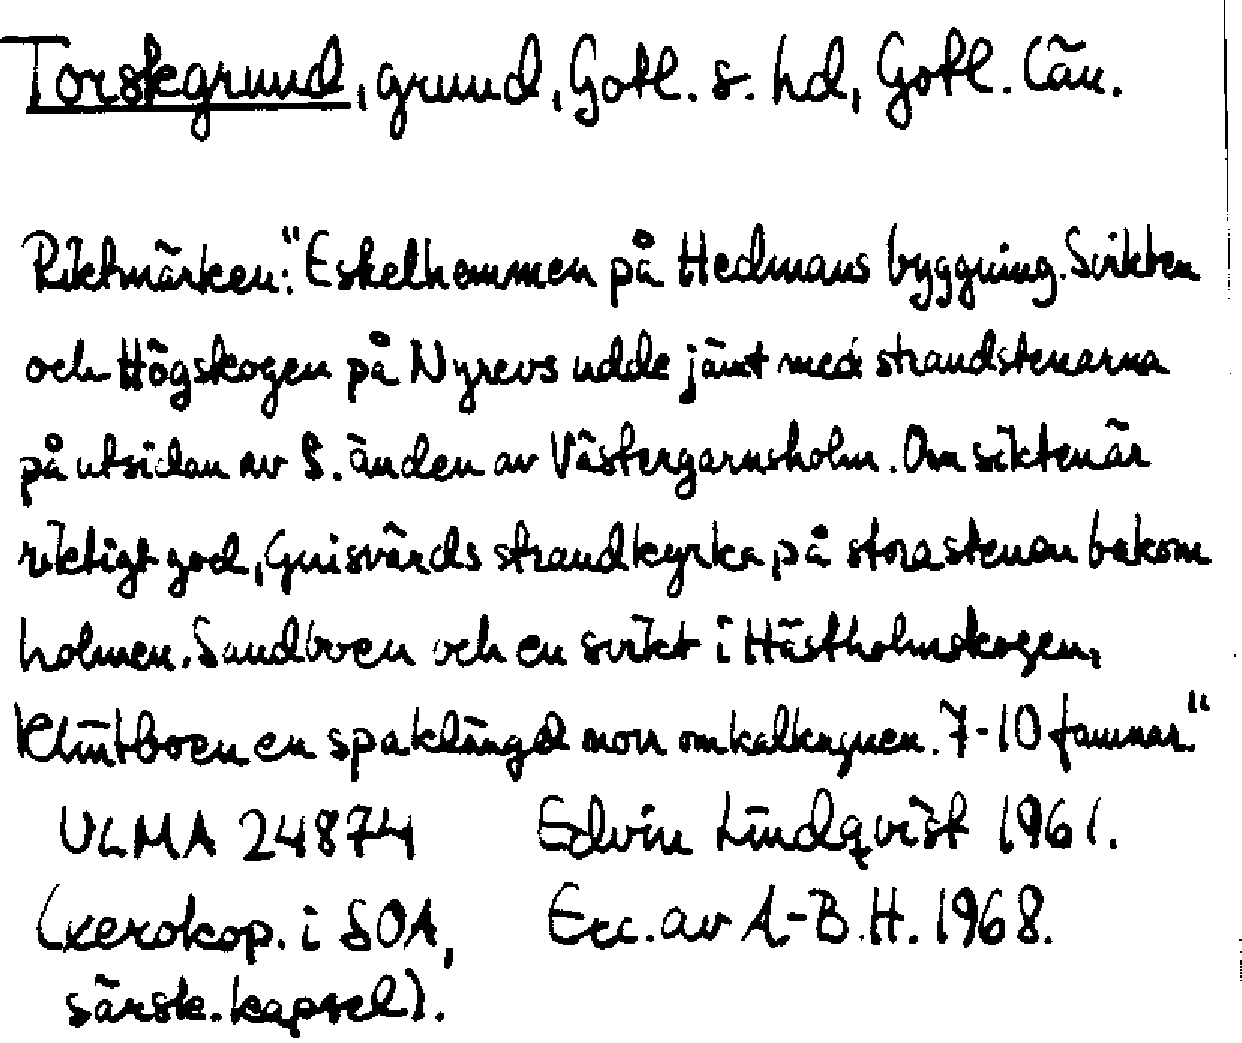 Torskgrund, grund, Gotl. s. hd, Gotl. län.
Riktmärken: "Eskelhemmen på Hedmans byggning. Svikten
och Högskogen på Nyrevs udde jämt med strandstenarna
på utsidan av S. änden av Västergarnsholm. Om sikten är
riktigt god, Gnisvärds strandkyrka på stora stenen bakom
holmen. Sandboen och en svikt i Hästholmskogen,
Klintboen en spaklängd norr om kalkugnen. 7-10 famnar."
ULMA 24874 Edvin Lindqvist 1961.
(xerokop. i SOA, Exc. av A-B.H. 1968.
särsk. kapsel).